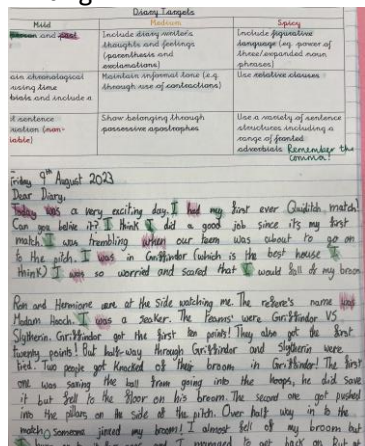 Diary Targets
Mild Medium Spicy
person and past
Include diary writer's thoughts and feelings (parenthesis and exclamations)
Include figurative language (eg. power of three/expanded noun phrases)
chronological
using time
and include a
Maintain informal tone (e.g. through use of contractions)
Use relative clauses
sentence
(non-
Show belonging through possessive apostrophes
Use a variety of sentence structures including a range of fronted adverbials Remember the comma!
Friday 9th August 2023
Dear Diary,
Today was a very exciting day. I had my first ever Quiditch match!
Can you belive it? I think I did a good job since its my first
match. I was trembling when our team was about to go on
to the pitch. I was in Griffindor (which is the best house I
think) I was so worried and scared that I would fall of my broom
Ron and Hermione were at the side watching me. The refere's name was
Madam Hooch. I was a seaker. The teams were Griffindor VS
Slytherin. Griffindor got the first ten points! They also got the first
twenty points! But half-way through Griffindor and Slytherin were
tied. Two people got knocked of their broom in Griffindor! The first
one was saving the ball from going into the hoops, he did save
it but fell to the floor on his broom. The second one got pushed
into the pillars on the side of the pitch. Over half way in to the
match, Someone jinxed my broom! I almost fell of my broom but
and I managed to get back on. But at